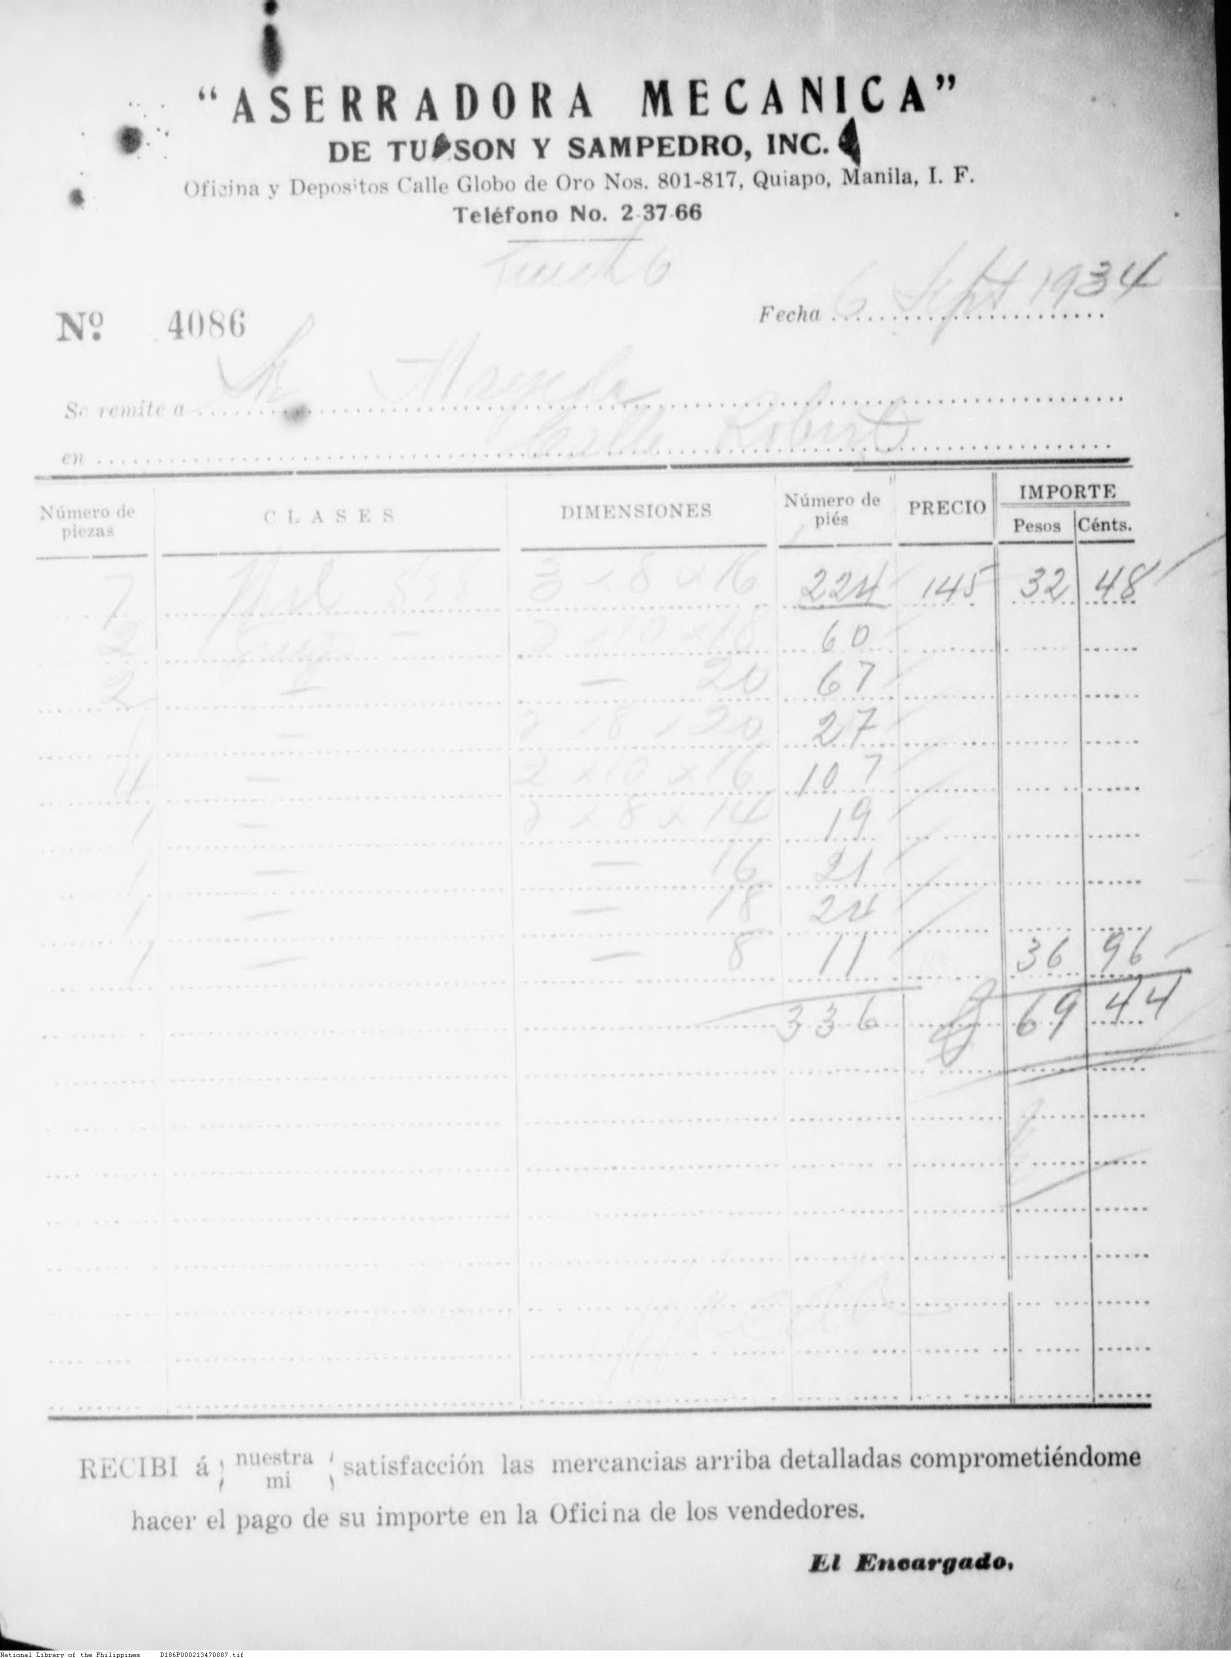 “ASERRADORA MECANICA”
DE TUASON Y SAMPEDRO, INC.
Oficina y Depositos Calle Globo de Oro Nos. 801-817, Quiapo, Manila, I. F.
Teléfono No. 2-37-66
6
Nº 4086
Fecha 6 Sept 1934
Se remite a Sr.
en Calle Robert
Número de piezas CLASES DIMENSIONES Número de piés PRECIO IMPORTE
Pesos Cénts.
7 3 x 8 x 16 224 145 32 48
2 x 10 x 18 60
2 — — 20 67
— x 8 x 20 27
4 — 2 x 10 x 16 107
1 — x 8 x 14 19
1 — — 16 21
1 — — 18 24
1 — — 8 11 36 96
336 69 44
RECIBI á nuestra mi satisfacción las mercancias arriba detalladas comprometiéndome
hacer el pago de su importe en la Oficina de los vendedores.
El Encargado.
National Library of the Philippines D186P000213470087.tif